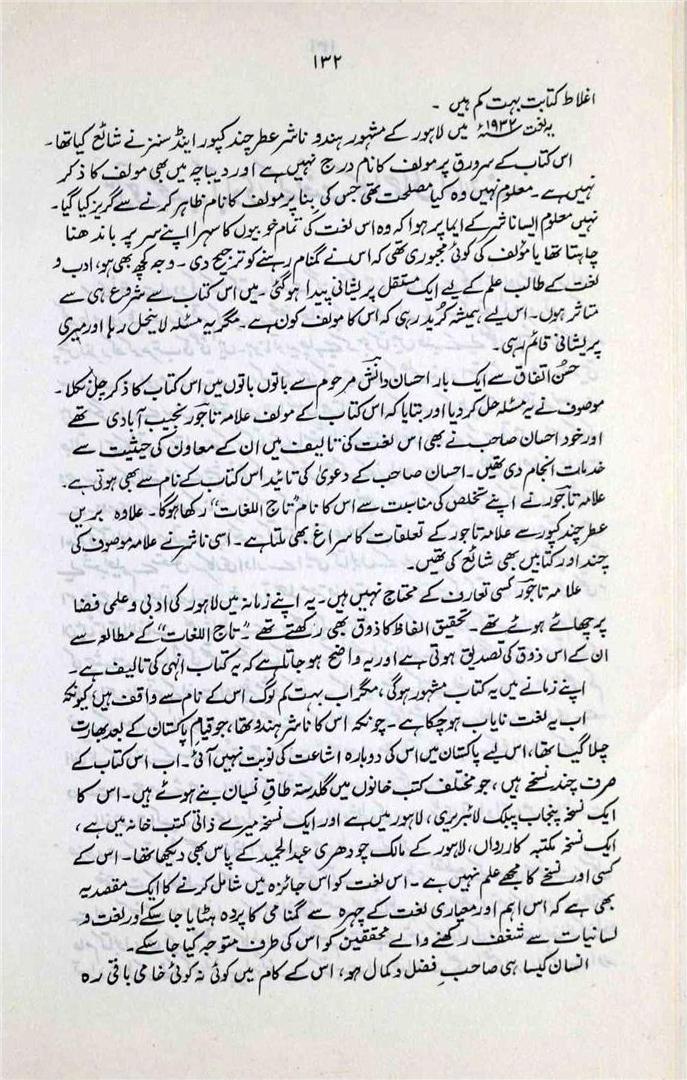 ۱۳۲
اغلاط کتابت بہت کم ہیں ۔
یہ لغت ۱۹۳۲ء میں لاہور کے مشہور ہندو ناشر عطر چند کپور اینڈ سنز نے شائع کیا تھا ۔
اس کتاب کے سرورق پر مولف کا نام درج نہیں ہے اور دیباچہ میں بھی مولف کا ذکر
نہیں ہے ۔ معلوم نہیں وہ کیا مصلحت تھی جس کی بنا پر مولف کا نام ظاہر کرنے سے گریز کیا گیا ۔
نہیں معلوم ایسا ناشر کے ایما پر ہوا کہ وہ اس لغت کی تمام خوبیوں کا سہرا اپنے سر پر باندھنا
چاہتا تھا یا مؤلف کی کوئی مجبوری تھی کہ اس نے گمنام رہنے کو ترجیح دی ۔ وجہ کچھ بھی ہو، ادب و
لغت کے طالب علم کے لیے ایک مستقل پریشانی پیدا ہوگئی ۔ میں اس کتاب سے شروع ہی سے
متاثر ہوں ۔ اس لیے ہمیشہ کُرید رہی کہ اس کا مولف کون ہے ۔ مگر یہ مسئلہ لاینحل رہا اور میری
پریشانی قائم رہی ۔
حسنِ اتفاق سے ایک بار احسان دانش مرحوم سے باتوں باتوں میں اس کتاب کا ذکر چل نکلا ۔
موصوف نے یہ مسئلہ حل کر دیا اور بتایا کہ اس کتاب کے مولف علامہ تاجور نجیب آبادی تھے
اور خود احسان صاحب نے بھی اس لغت کی تالیف میں ان کے معاون کی حیثیت سے
خدمات انجام دی تھیں ۔ احسان صاحب کے دعویٰ کی تائید اس کتاب کے نام سے بھی ہوتی ہے ۔
علامہ تاجور نے اپنے تخلص کی مناسبت سے اس کا نام ”تاج اللغات“ رکھا ہوگا ۔ علاوہ بریں
عطر چند کپور سے علامہ تاجور کے تعلقات کا سراغ بھی ملتا ہے ۔ اسی ناشر نے علامہ موصوف کی
چند اور کتابیں بھی شائع کی تھیں ۔
علامہ تاجور کسی تعارف کے محتاج نہیں ہیں ۔ یہ اپنے زمانہ میں لاہور کی ادبی و علمی فضا
پر چھائے ہوئے تھے ۔ تحقیق الفاظ کا ذوق بھی رکھتے تھے ۔ ”تاج اللغات“ کے مطالعہ سے
ان کے اس ذوق کی تصدیق ہوتی ہے اور یہ واضح ہو جاتا ہے کہ یہ کتاب انہی کی تالیف ہے ۔
اپنے زمانے میں یہ کتاب مشہور ہوگی، مگر اب بہت کم لوگ اس کے نام سے واقف ہیں؛ کیونکہ
اب یہ لغت نایاب ہو چکا ہے ۔ چونکہ اس کا ناشر ہندو تھا، جو قیام پاکستان کے بعد بھارت
چلا گیا تھا، اس لیے پاکستان میں اس کی دوبارہ اشاعت کی نوبت نہیں آئی ۔ اب اس کتاب کے
صرف چند نسخے ہیں، جو مختلف کتب خانوں میں گلدستہ طاقِ نسیاں بنے ہوئے ہیں ۔ اس کا
ایک نسخہ پنجاب پبلک لائبریری، لاہور میں ہے اور ایک نسخہ میرے ذاتی کتب خانہ میں ہے،
ایک نسخہ مکتبہ کارواں، لاہور کے مالک چودھری عبدالحمید کے پاس بھی دیکھا تھا ۔ اس کے
کسی اور نسخے کا مجھے علم نہیں ہے ۔ اس لغت کو اس جائزہ میں شامل کرنے کا ایک مقصد یہ
بھی ہے کہ اس اہم اور معیاری لغت کے چہرہ سے گمنامی کا پردہ ہٹایا جا سکے اور لغت و
لسانیات سے شغف رکھنے والے محققین کو اس کی طرف متوجہ کیا جا سکے ۔
انسان کیسا ہی صاحبِ فضل و کمال ہو، اس کے کام میں کوئی نہ کوئی خامی باقی رہ